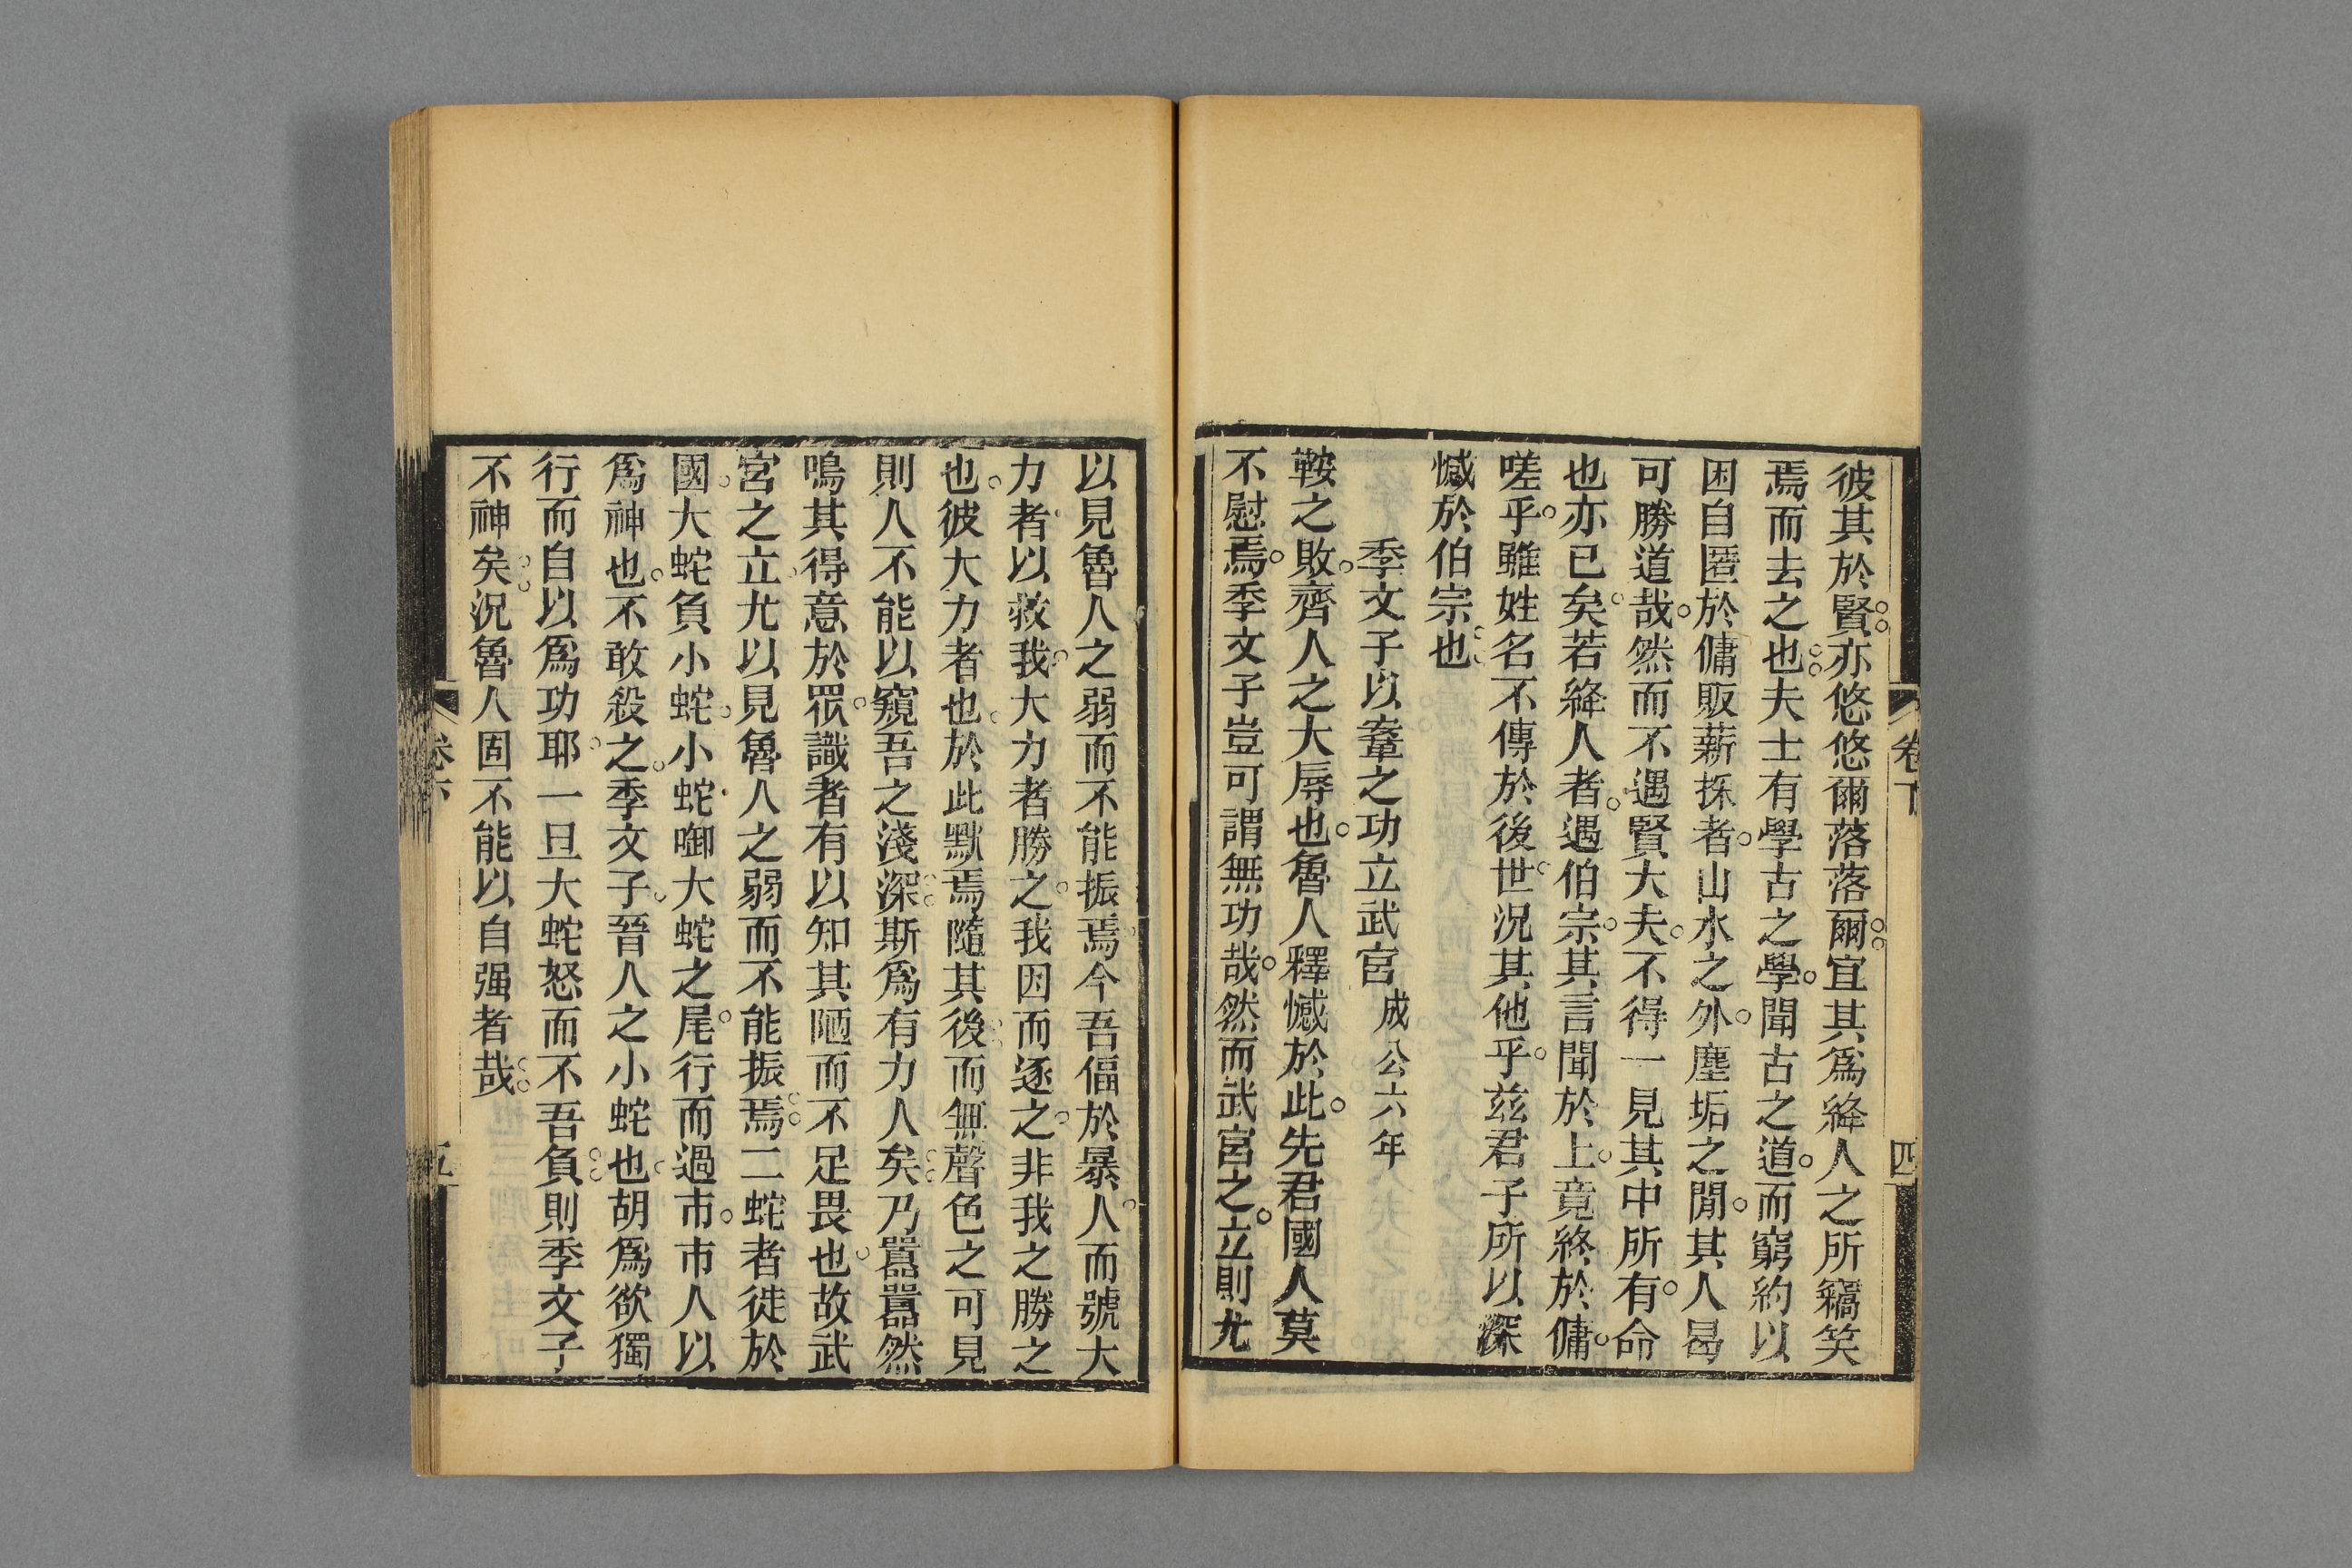 彼其於賢亦悠悠爾落落爾宜其爲絳人之所竊笑
焉而去之也夫士有學古之學聞古之道而窮約以
困自匿於傭販薪採者山水之外塵垢之閒其人曷
可勝道哉然而不遇賢大夫不得一見其中所有命
也亦已矣若絳人者遇伯宗其言聞於上竟終於傭
嗟乎雖姓名不傳於後世況其他乎兹君子所以深
憾於伯宗也
季文子以鞌之功立武宮 成公六年
鞍之敗齊人之大辱也魯人釋憾於此先君國人莫
不慰焉季文子豈可謂無功哉然而武宮之立則尤
卷下
四
以見魯人之弱而不能振焉今吾偪於暴人而號大
力者以救我大力者勝之我因而逐之非我之勝之
也彼大力者也於此默焉隨其後而無聲色之可見
則人不能以窺吾之淺深斯爲有力人矣乃囂囂然
鳴其得意於眾識者有以知其陋而不足畏也故武
宮之立尤以見魯人之弱而不能振焉二蛇者徙於
國大蛇負小蛇小蛇啣大蛇之尾行而過市市人以
爲神也不敢殺之季文子晉人之小蛇也胡爲欲獨
行而自以爲功耶一旦大蛇怒而不吾負則季文子
不神矣況魯人固不能以自强者哉